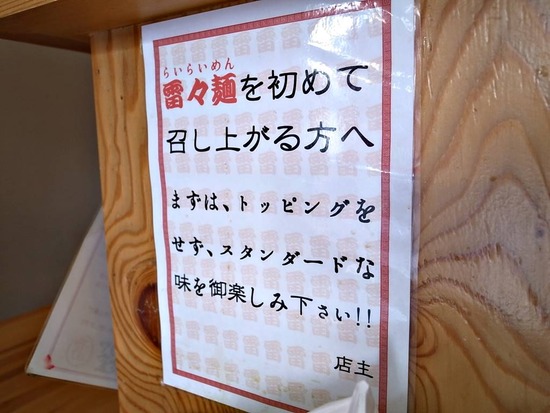 らいらいめん
雷々麺を初めて
召し上がる方へ
まずは、トッピングを
せず、スタンダードな
味を御楽しみ下さい!!
店主